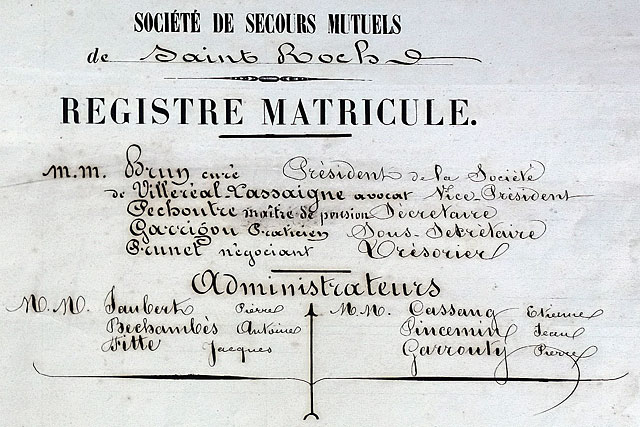 SOCIÉTÉ DE SECOURS MUTUELS
de Saint Roch
REGISTRE MATRICULE.
M.M. Brun curé Président de la Société
de Villeréal-Lassaigne avocat Vice Président
Pechoutre maître de pension Secretaire
Garrigou Praticien Sous-Sekrétaire
Prunet négociant Trésorier
Administrateurs
M.M. Jaubert Pierre
Bechambès Antoine
Fitte Jacques
M.M. Cassang Etienne
Pincemin Jean
Garrouty Pierre